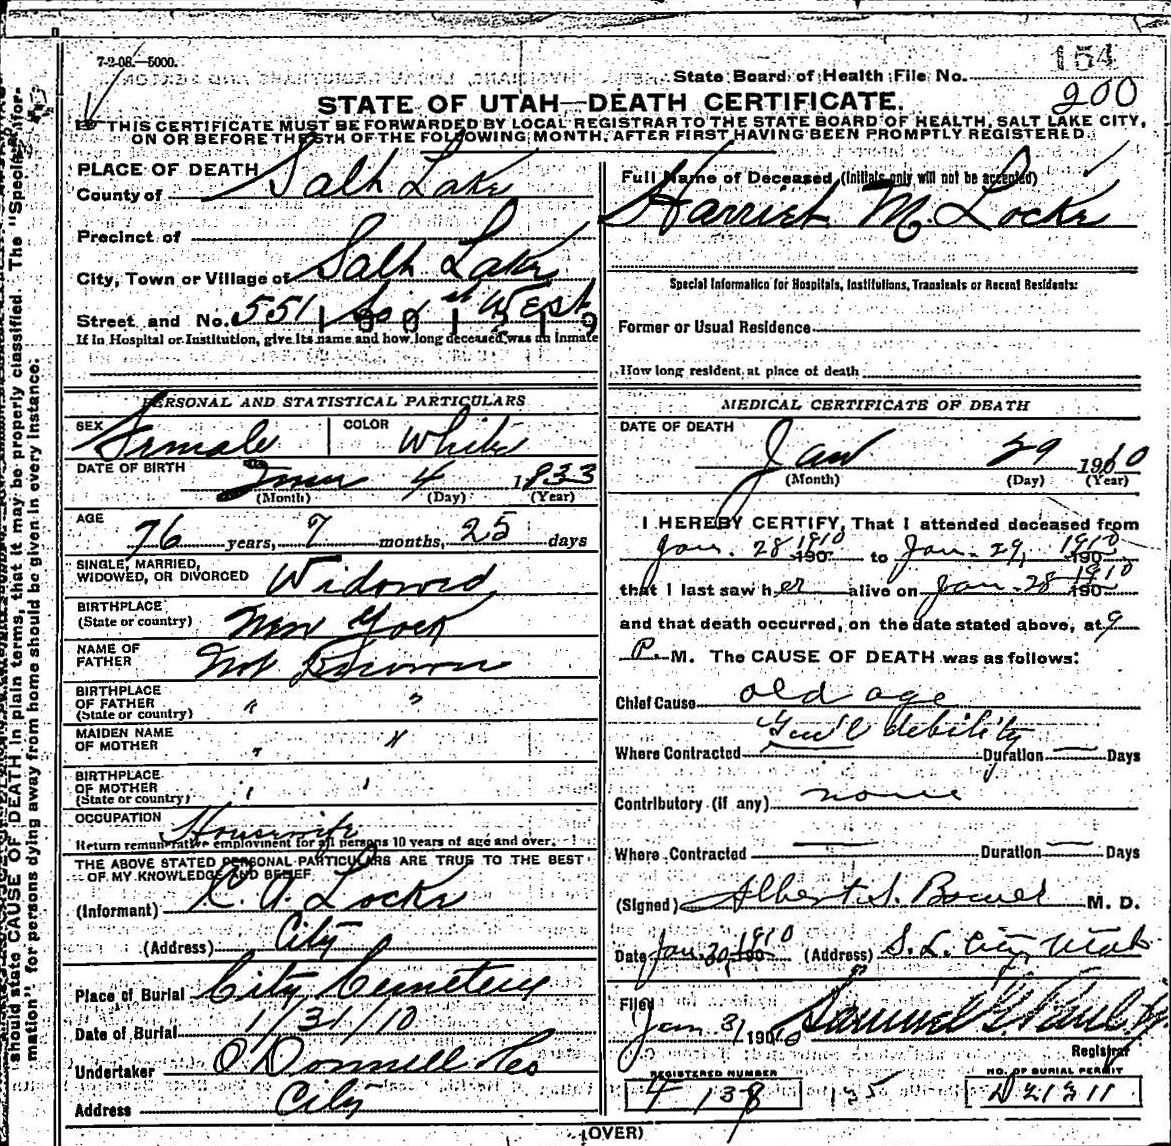 7-2-08.—5000.
State Board of Health File No. 154
200
STATE OF UTAH—DEATH CERTIFICATE.
THIS CERTIFICATE MUST BE FORWARDED BY LOCAL REGISTRAR TO THE STATE BOARD OF HEALTH, SALT LAKE CITY,
ON OR BEFORE THE 5TH OF THE FOLLOWING MONTH, AFTER FIRST HAVING BEEN PROMPTLY REGISTERED
PLACE OF DEATH
County of Salt Lake
Precinct of
City, Town or Village of Salt Lake
Street and No. 551 So 1st West
If in Hospital or Institution, give its name and how long deceased was an inmate
Full Name of Deceased (Initials only will not be accepted)
Harriet M Locke
Special Information for Hospitals, Institutions, Transients or Recent Residents:
Former or Usual Residence
How long resident at place of death
PERSONAL AND STATISTICAL PARTICULARS
SEX Female COLOR White
DATE OF BIRTH
4 1833
(Month) (Day) (Year)
AGE
76 years, 7 months, 25 days
SINGLE, MARRIED,
WIDOWED, OR DIVORCED Widowed
BIRTHPLACE
(State or country) New York
NAME OF
FATHER Not Known
BIRTHPLACE
OF FATHER " "
(State or country)
MAIDEN NAME
OF MOTHER " "
BIRTHPLACE
OF MOTHER " "
(State or country)
OCCUPATION Housewife
Return remunerative employment for all persons 10 years of age and over.
THE ABOVE STATED PERSONAL PARTICULARS ARE TRUE TO THE BEST
OF MY KNOWLEDGE AND BELIEF
(Informant) C. A. Locke
(Address) City
Place of Burial City Cemetery
Date of Burial 1/31/10
Undertaker O'Donnell & Co
Address City
MEDICAL CERTIFICATE OF DEATH
DATE OF DEATH
Jan 29 1910
(Month) (Day) (Year)
I HEREBY CERTIFY, That I attended deceased from
Jan. 28 1910 190 to Jan. 29, 1910 190
that I last saw her alive on Jan. 28 1910 190
and that death occurred, on the date stated above, at 9
P. M. The CAUSE OF DEATH was as follows:
Chief Cause old age
Gen'l debility
Where Contracted — Duration — Days
Contributory (if any) none
Where Contracted — Duration — Days
(Signed) Albert S. Bower M. D.
Date Jan. 30, 1910 190 (Address) S. L. City, Utah
Filed
Jan 31 1900 Samuel G. Paul
Registrar
REGISTERED NUMBER
F 138
135
NO. OF BURIAL PERMIT
D 21311
(OVER)
should state CAUSE OF DEATH in plain terms, that it may be properly classified. The "Special Infor-
mation" for persons dying away from home should be given in every instance.